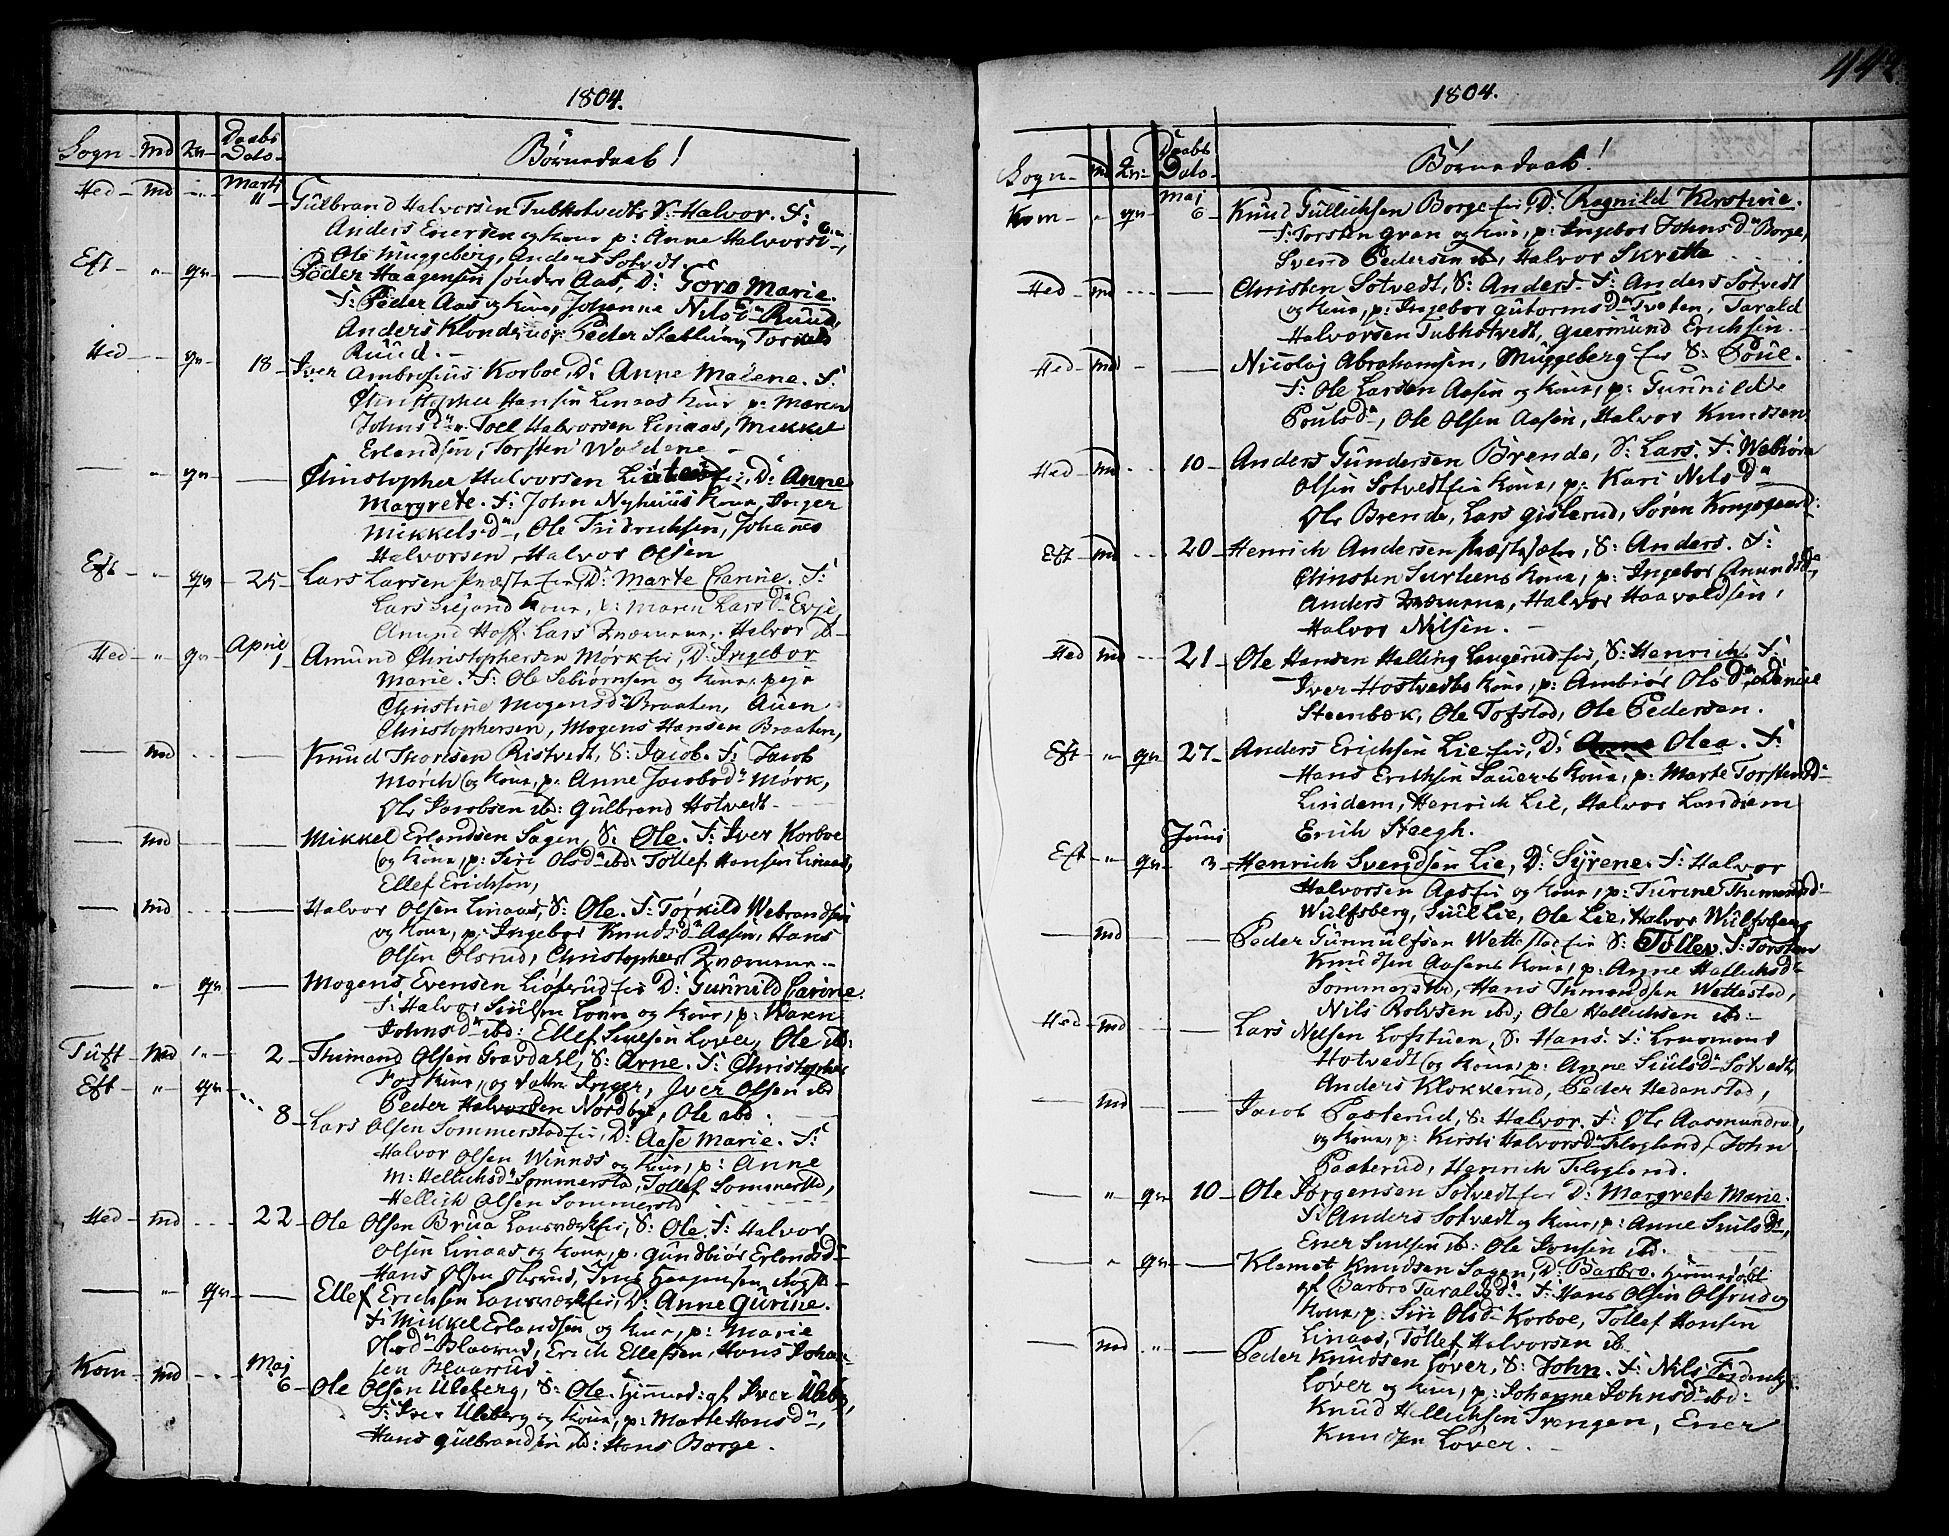 442
1804.
Sogn md qv Daabs Dato
Børnedaab!
Hed md Marti 11 Gulbrand Halvorsen Tubhotvedts S: Halvor. F:
Anders Enersen og Kone p: Anne Halvorsd
Ole Muggeberg, Anders Sotvedt
Eft qv Peder Haagensen søndre Aas, D: Goro Marie.
F: Peder Aas og Kone, Johanne Nilsd Ruud,
Anders Klonderud, Peder Stablum, Torkild
Ruud.
Hed qv 18 Iver Ambrosius Korboe, D: Anne Malene. F:
Christopher Hansen Linaas Kone p: Maren
Johnsd Toll Halvorsen Linaas, Mikkel
Erlandsen, Torsten Woldene
qv Christopher Halvorsen D: Anne
Margrete. F: John Nyhuus Kone, Inger
Mikkelsd, Ole Fridrichsen, Johannes
Halvorsen, Halvor Olsen
Eft qv 25 Lars Larsen Præste eier, D: Marte Carine. F:
Lars Kone, p: Maren Larsd Evje
Amund Hoff. Lars Halvor ib
Hed qv April 1 Amund Christophersen Mørk eier, D: Ingebor
Marie. F: Ole Sebiørnsen og Kone, pige
Christine Mogensd Braaten, Auen
Christophersen, Mogens Hansen Braaten,
md Knud Thoresen Ristvedt, S: Jacob. F: Jacob
Mörch og Kone, p: Anne Jacobsd Mørk,
Ole Jacobsen ibd: Gulbrand Hotvedt
md Mikkel Erlandsen Sagen, S: Ole. F: Iver Korboe
og Kone, p: Siri Olsd ibd: Tollef Hansen Linaas,
Ellef Erichsen,
md Halvor Olsen Linaas, S: Ole. F: Torkild Webrandsen
og Kone, p: Ingebor Knudsd Aasen, Hans
Olsen Olsrud, Christopher
qv Mogens Evensen Liøterud eier D: Gunnild Carine.
F: Halvor Siulsen Lover og Kone, p: Karen
Johnsd ibd: Ellef Siulsen Lover, Ole ib:
Tuft md 2 Thimand Olsen Gravdahl, S: Arne. F: Christopher
Fos Kone, og datter Inger, Iver Olsen ibd
Peder Halvorsen Nordbye, Ole ibd
Eft qv 8 Lars Olsen Sommerstad eier, D: Aase Marie. F:
Halvor Olsen Winnæs og Kone, p: Anne
M: Hellichsd Sommerstad, Tollef Sommerstad,
Hellich Olsen Sommerstd
Hed md 22 Ole Olsen Brua Lansværk eier, S: Ole. F: Halvor
Olsen Linaas og Kone, p: Gundbiør Erlandsd
Hans Olsen Olsrud,
qv Ellef Erichsen Lansværk eier, D: Anne Gurine.
F: Mikkel Erlandsen og Kone, p: Marie
Blaarud, Erich Ellefsen, Hans Johan-
sen Blaarud
Kom md Maj 6 Ole Olsen Uleberg, S: Ole. af Iver Uleb,
F: Iver Uleberg og Kone, p: Marte Hansd,
Hans Gulbrandsen ib: Hans Borge.
1804.
Sogn md qv Daabs Dato
Børnedaab!
Kom qv Maj 6 Knud Gullichsen Borge eier, D: Ragnild Kirstine.
F: Torsten Gran og Kone, p: Ingebor Johnsd Borge,
Svend Pedersen ib, Halvor Skrette
Hed md Christen Sotvedt, S: Anders. F: Anders Sotvedt
og Kone, p: Ingebor Gutormsd Tveten, Tarald
Halvorsen Tubhotvedt, Giermund Erichsen
Hed md Nicolaj Abrahamsen, Muggeberg eier S: Poul.
F: Ole Larsen Aasen og Kone, p: Gunnild
Poulsd, Ole Olsen Aasen, Halvor Knudsen
Hed md 10 Anders Gundersen Brende, S: Lars. F: Webiørn
Olsen Sotvedt eier Kone, p: Kari Nilsd
Ole Brende, Lars Gislerud, Søren Kongsgaard
Eft md 20 Henrich Andersen S: Anders. F:
Christen Kone, p: Ingebor Amundsd,
Anders Halvor Haavaldsen,
Halvor Nilsen.
Hed md 21 Ole Hansen Halling Langerud eier, S: Henrich. F:
Iver Hostvedts Kone, p: Ambiør Olsd,
Steenbæk, Ole Tofstad, Ole Pedersen.
Eft qv 27 Anders Erichsen Lie eier, D: Anne Olea. F:
Hans Erichsen Sauer Kone, p: Marte Torstensd
Lindem, Henrich Lie, Halvor Lindem
Erich Staegh.
Eft qv Juni 3 Henrich Svendsen Lie, D: Syrene. F: Halvor
Halvorsen Aas eier og Kone, p: Turine Thimansd
Wulfsberg, Siul Lie, Ole Lie, Halvor Wulfsberg
md Peder Gunnulfsen Wettestad eier S: Tollev. F: Torsten
Knudsen Aasens Kone, p: Anne Hallichsd
Sommerstad, Hans Thimandsen Wettestad,
Nils Rolvsen ibd, Ole Hallichsen ib:
Hed md Lars Nilsen Lofstuen, S: Hans. F:
Hotvedt og Kone, p: Anne Siulsd Sotvedt,
Anders Klokkerud, Peder Hedenstad,
md Jacob Paaterud, S: Halvor. F: Ole Aasmundrud,
og Kone, p: Kirsti Halvorsd Flogland, John
Paaterud, Henrich Flogland.
qv 10 Ole Jørgensen Sotvedt eier D: Margrete Marie.
F: Anders Sotvedt og Kone, p: Anne Siulsd,
Ener Siulsen ib: Ole Jonsen ib.
qv Klemet Knudsen Sagen, D: Barbro. Hjemmedøbt
af Barbro Taralsd. F: Hans Olsen Olsrud og
Kone, p: Siri Olsd Korboe, Tollef Hansen
Linaas, Tollef Halvorsen ib.
md Peder Knudsen Lover, S: John. F: Nils
Lover og Kone, p: Johanne Johnsd ibd:
Knud Hellichsen Trengen, Ener
Knudsen Lover.